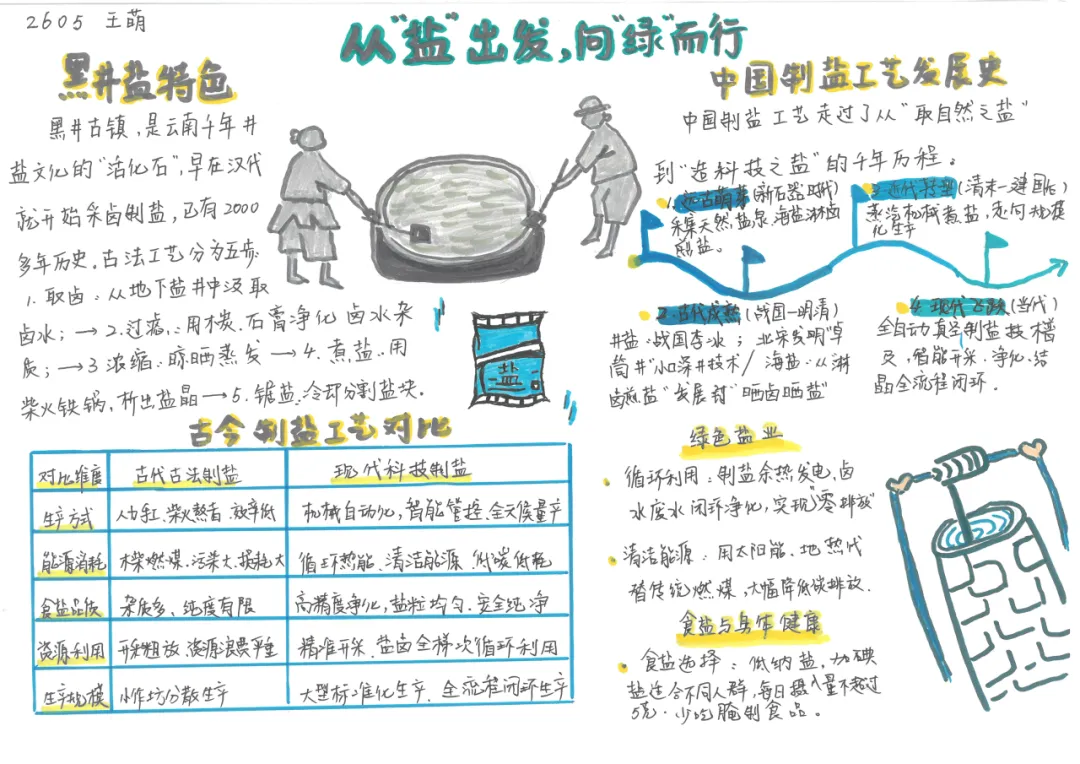 2605 王萌
从"盐"出发,向"绿"而行
黑井盐特色
黑井古镇,是云南千年井
盐文化的"活化石",早在汉代
就开始采卤制盐,已有2000
多年历史.古法工艺分为五步:
1.取卤:从地下盐井中汲取
卤水;→2.过滤:用木炭.石膏净化卤水杂
质;→3浓缩:晾晒蒸发→4.煮盐:用
柴火铁锅,析出盐晶→5.锯盐:冷却分割盐块.
中国制盐工艺发展史
中国制盐工艺走过了从"取自然之盐"
到"造科技之盐"的千年历程。
1.远古萌芽(新石器时代)
采集天然,盐泉、海盐淋卤
煎盐。
3.近代转型(清末—建国后)
蒸汽机械煮盐,走向规模
化生产
2.古代成熟(战国—明清)
井盐:战国李冰;北宋发明"卓
筒井"小口深井技术/海盐:从淋
卤煎盐"发展到"晒卤晒盐"
4.现代飞跃(当代)
全自动真空制盐技术普
及,智能开采.净化.结
晶全流程闭环.
盐
古今制盐工艺对比
对比维度 古代古法制盐 现代科技制盐
生产方式 人力手工、柴火熬煮、效率低 机械自动化,智能管控、全天候量产
能源消耗 木柴燃煤、污染大、损耗大 循环热能、清洁能源、低碳低耗
食盐品质 杂质多、纯度有限 高精度净化,盐粒均匀、安全纯净
资源利用 开采粗放 资源浪费严重 精准开采、盐卤全梯次循环利用
生产规模 小作坊分散生产 大型标准化生产、全流程闭环生产
绿色盐业
循环利用:制盐余热发电,卤
水废水闭环净化,实现"零排放"
清洁能源:用太阳能、地热代
替传统燃煤,大幅降低碳排放.
食盐与身体健康
食盐选择:低钠盐,加碘
盐适合不同人群,每日摄入量不超过
5克.少吃腌制食品。